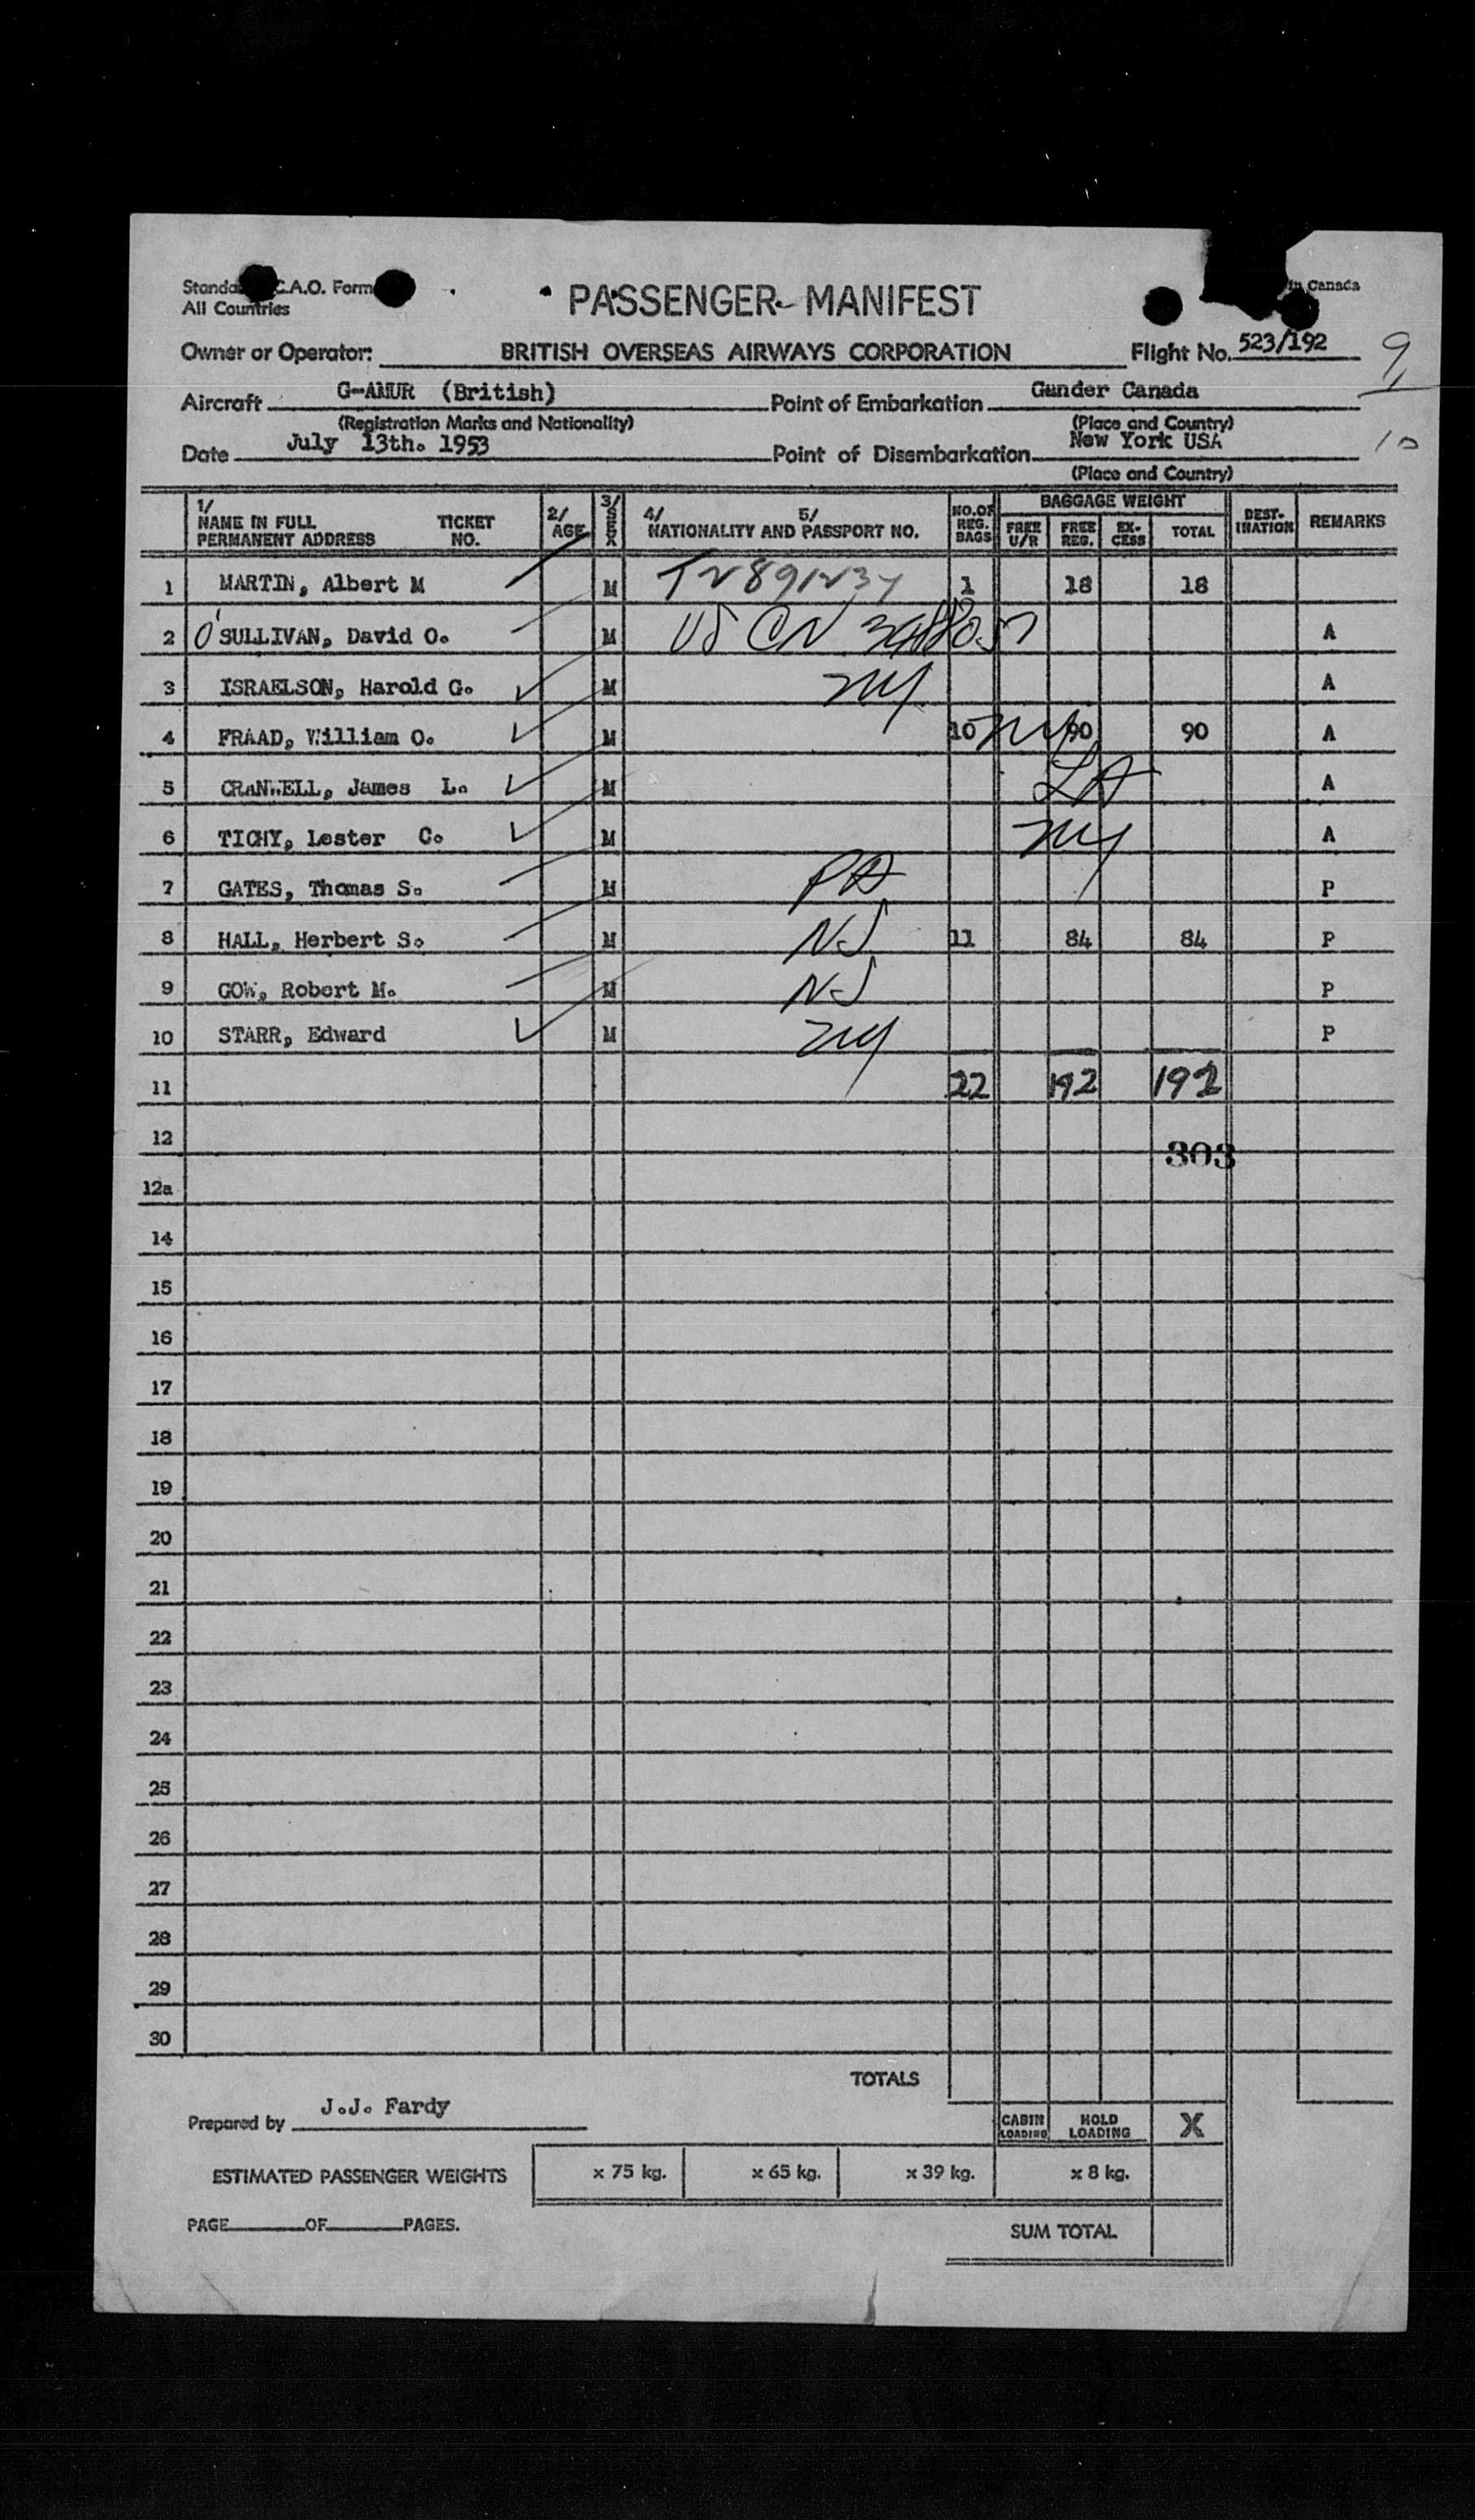 Standa C.A.O. Form
All Countries
PASSENGER MANIFEST
in Canada
Owner or Operator: BRITISH OVERSEAS AIRWAYS CORPORATION Flight No. 523/192
9
Aircraft G-AMUR (British) Point of Embarkation Gander Canada
(Registration Marks and Nationality) (Place and Country)
Date July 13th. 1953 Point of Disembarkation New York USA
10
(Place and Country)
1/ NAME IN FULL PERMANENT ADDRESS TICKET NO. 2/ AGE 3/ SEX 4/ NATIONALITY AND 5/ PASSPORT NO. NO. OF REG. BAGS BAGGAGE WEIGHT FREE U/R FREE REG. EX-CESS TOTAL DEST-INATION REMARKS
1 MARTIN, Albert M M 1 18 18
2 O'SULLIVAN, David O. M US CN A
3 ISRAELSON, Harold G. M NY A
4 FRAAD, William O. M 10 NY 90 90 A
5 CRANWELL, James L. M A
6 TICHY, Lester C. M NY A
7 GATES, Thomas S. M PA P
8 HALL, Herbert S. M NJ 11 84 84 P
9 GOW, Robert M. M NJ P
10 STARR, Edward M NY P
11 22 192 192
12 303
12a
14
15
16
17
18
19
20
21
22
23
24
25
26
27
28
29
30
TOTALS
Prepared by J.J. Fardy
CABIN LOADING HOLD LOADING X
ESTIMATED PASSENGER WEIGHTS x 75 kg. x 65 kg. x 39 kg. x 8 kg.
PAGE OF PAGES.
SUM TOTAL